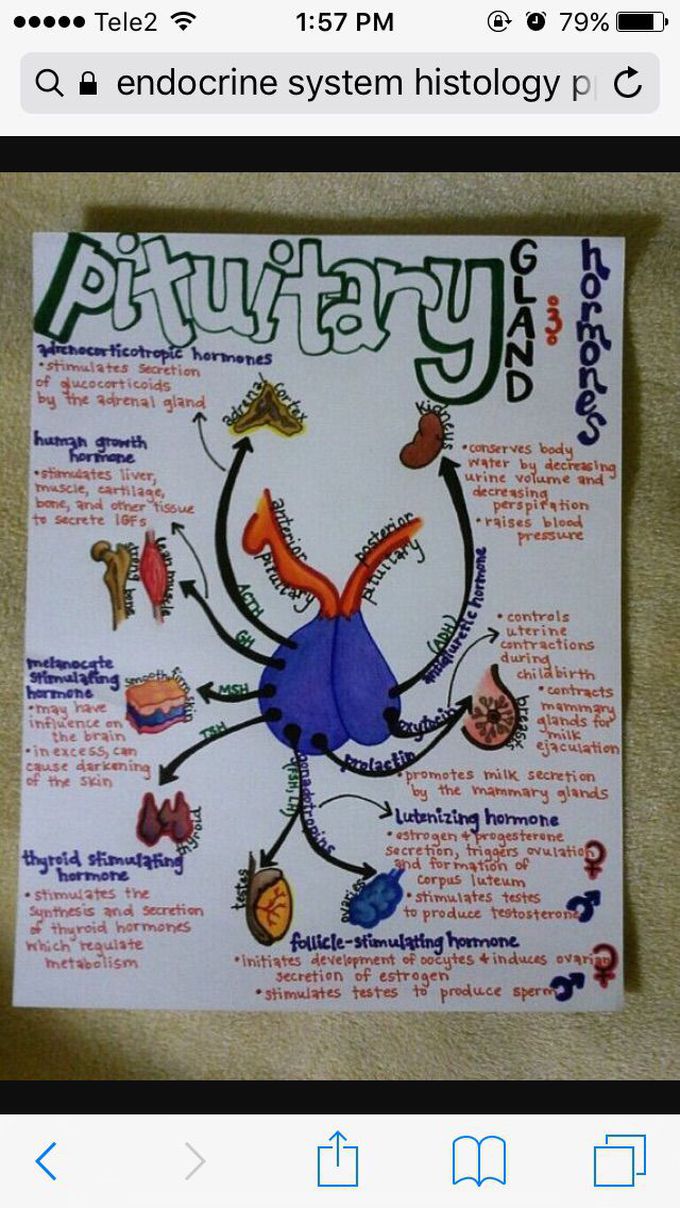 Tele2
1:57 PM
79%
endocrine system histology p
pituitary
GLAND
&
hormones
adrenocorticotropic hormones
• stimulates secretion
of glucocorticoids
by the adrenal gland
adrenal cortex
kidneys
• conserves body
water by decreasing
urine volume and
decreasing
perspiration
• raises blood
pressure
human growth
hormone
• stimulates liver,
muscle, cartilage,
bone, and other tissue
to secrete IGFs
strong bone
lean muscle
anterior
pituitary
posterior
pituitary
ACTH
GH
MSH
TSH
(ADH)
antidiuretic hormone
oxytocin
prolactin
gonadotropins
(FSH, LH)
• controls
uterine
contractions
during
childbirth
• contracts
mammary
glands for
milk
ejaculation
breasts
melanocyte
stimulating
hormone
• may have
influence on
the brain
• in excess, can
cause darkening
of the skin
smooth firm skin
• promotes milk secretion
by the mammary glands
thyroid
thyroid stimulating
hormone
• stimulates the
synthesis and secretion
of thyroid hormones
which regulate
metabolism
lutenizing hormone
• estrogen + progesterone
secretion, triggers ovulation
and formation of
corpus luteum
• stimulates testes
to produce testosterone
testes
ovaries
follicle-stimulating hormone
• initiates development of oocytes + induces ovarian
secretion of estrogen
• stimulates testes to produce sperm